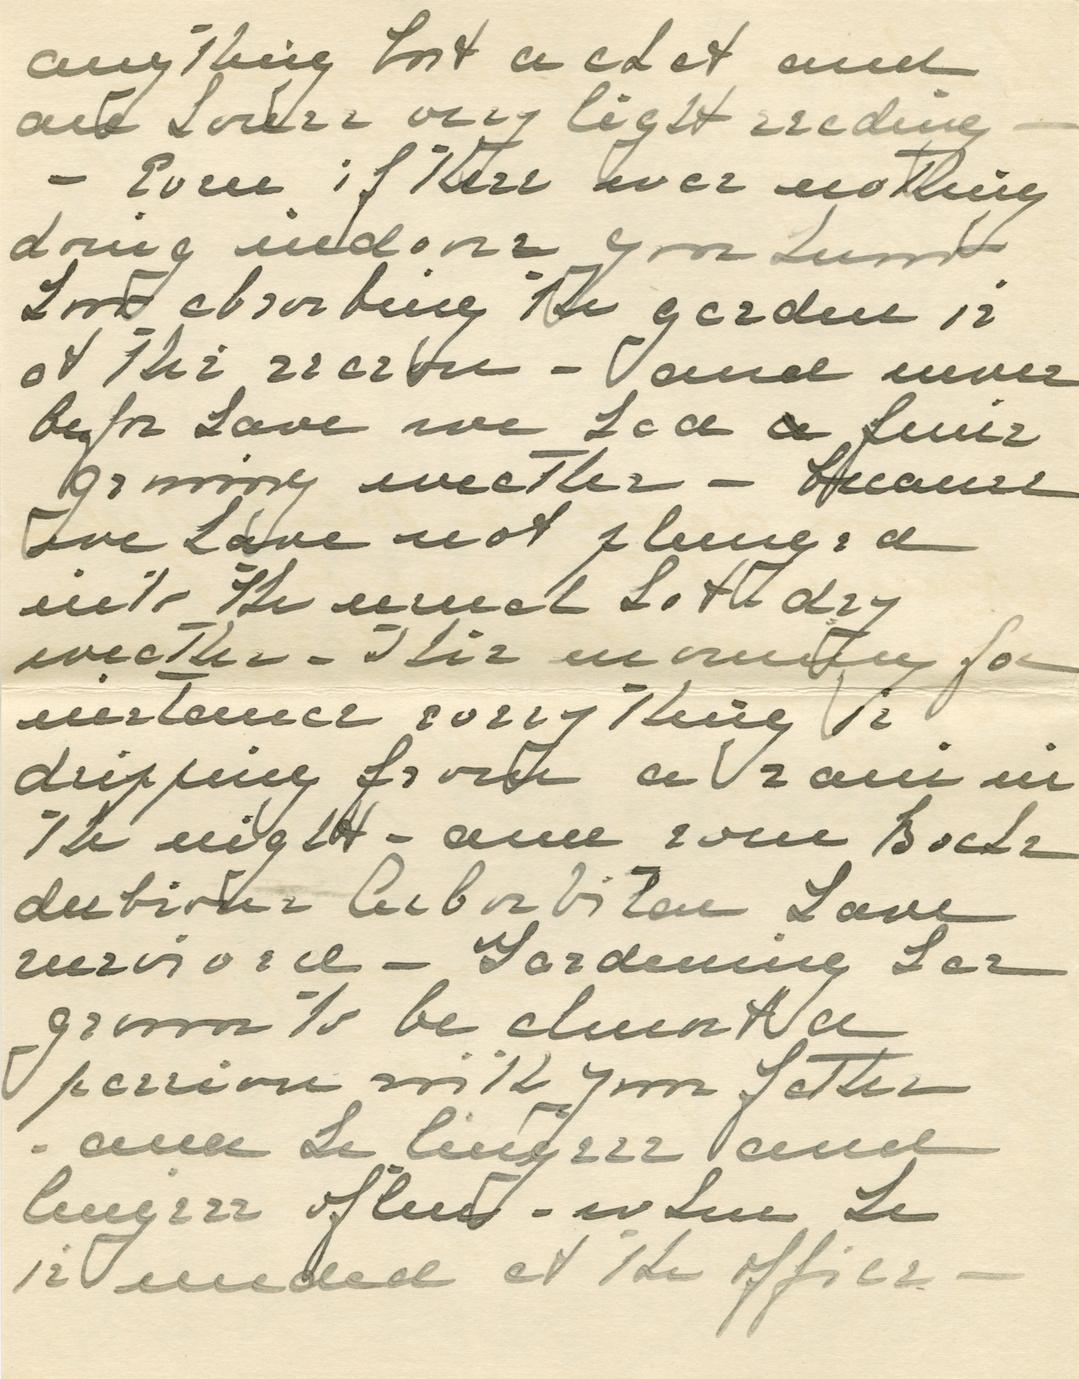 anything but a chat and
and some very light reading —
- Even if there were nothing
doing indoors you know
how absorbing the garden is
at this season - and never
before have we had a finer
growing weather - because
we have not plunged
into the usual hot dry
weather - This morning for
instance everything is
dripping from a rain in
the night - and some Bachs
dubious have
survived - Gardening has
grown to be almost a
passion with your father
- and he lingers and
lingers often - when he
is needed at the office —